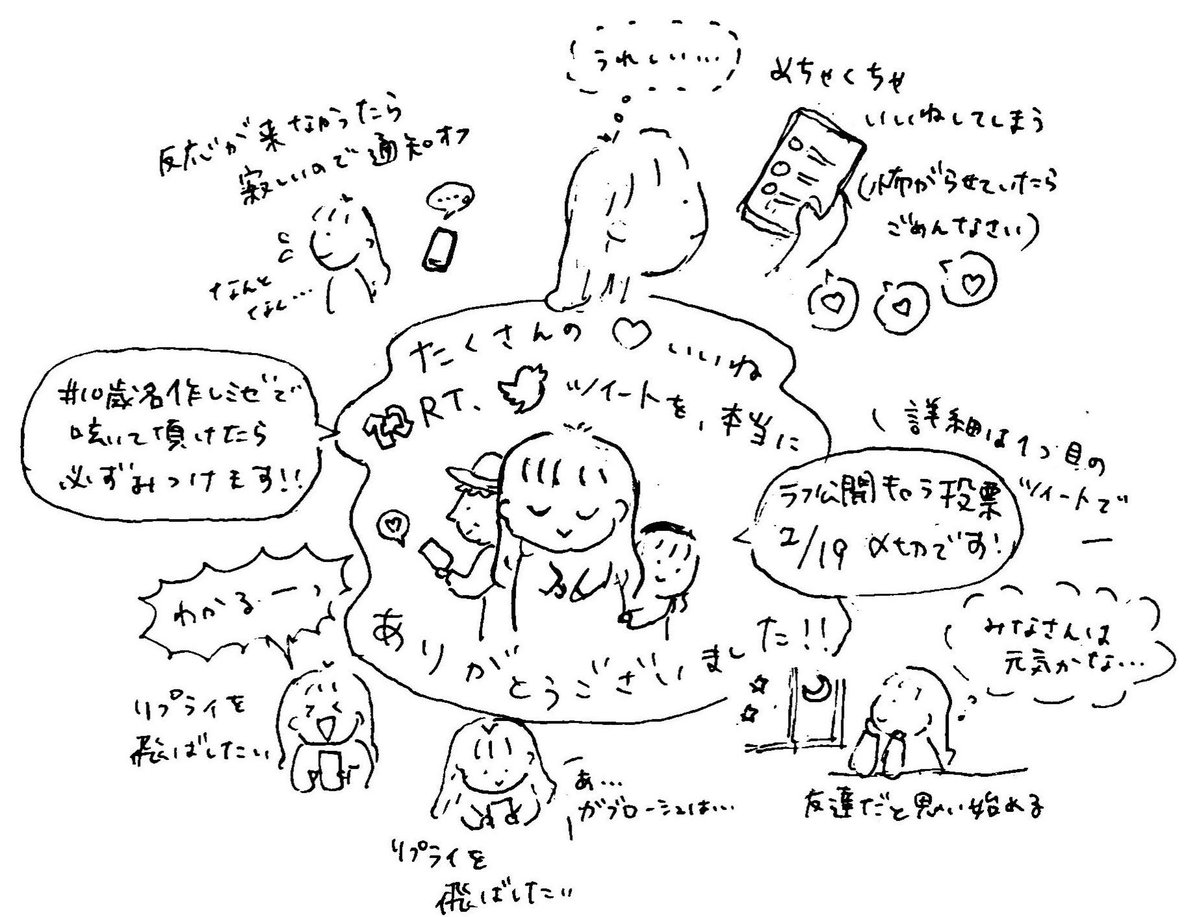 うれしい…
めちゃくちゃ
いいねしてしまう
(怖がらせていたら
ごめんなさい)
反応が来なかったら
寂しいので通知オフ
なんと
なく…
たくさんの♡いいね
RT、ツイートを、本当に
ありがとうございました!!
#10歳名作レミゼで
呟いて頂けたら
必ずみつけます!!
詳細は1つ目の
ツイートで
ラフ公開もらう投票
2/19〆切です!
わかるーっ
リプライを
飛ばしたい
あ…
ガブローシュは…
リプライを
飛ばしたい
みなさんは
元気かな…
友達だと思い始める